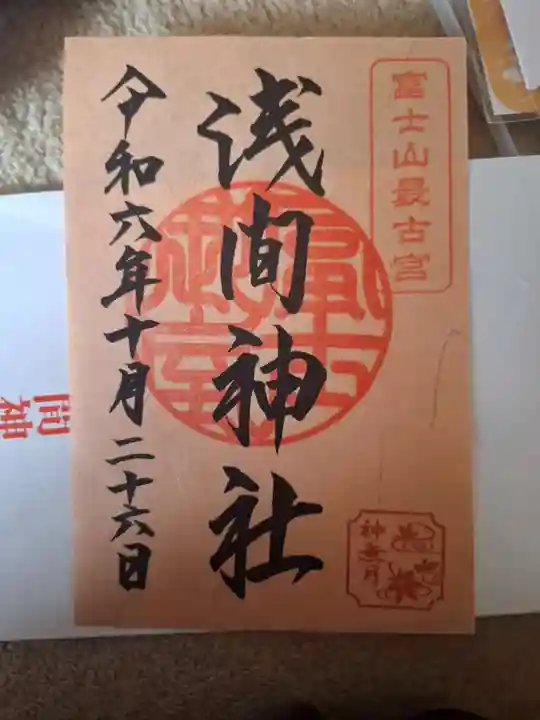 富士山最古宮
浅间神社
令和六年十月二十六日
神無月
间神